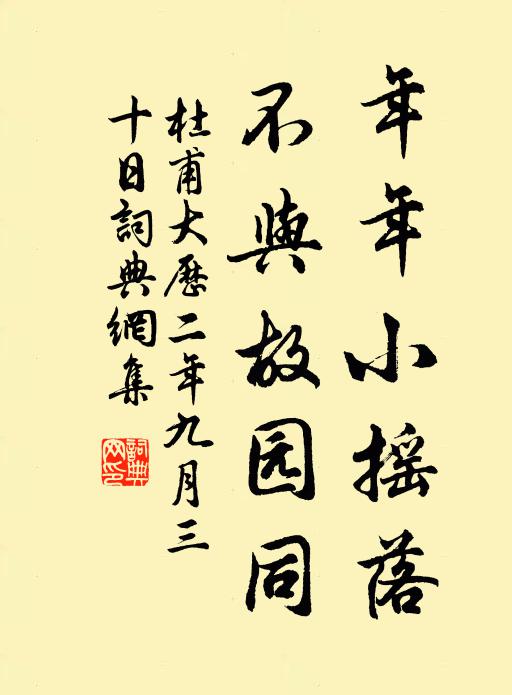 年年小摇落
不與故园同
杜甫大歷二年九月三
十日詞典網集
詞典
网印